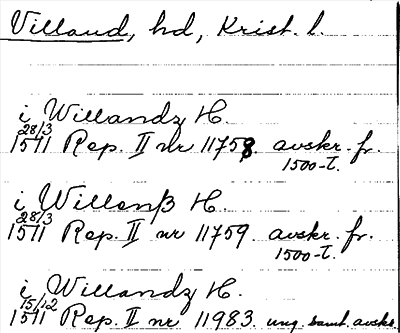 Villand, hd, Krist. l.
i Willandz H.
28/3
1511 Rep. II nr 11758. avskr. fr.
1500-t.
i Willenß H.
28/3
1511 Rep. II nr 11759. avskr. fr.
1500-t.
i Willandz H.
15/12
1511 Rep. II nr 11983. ung. saml. avskr.